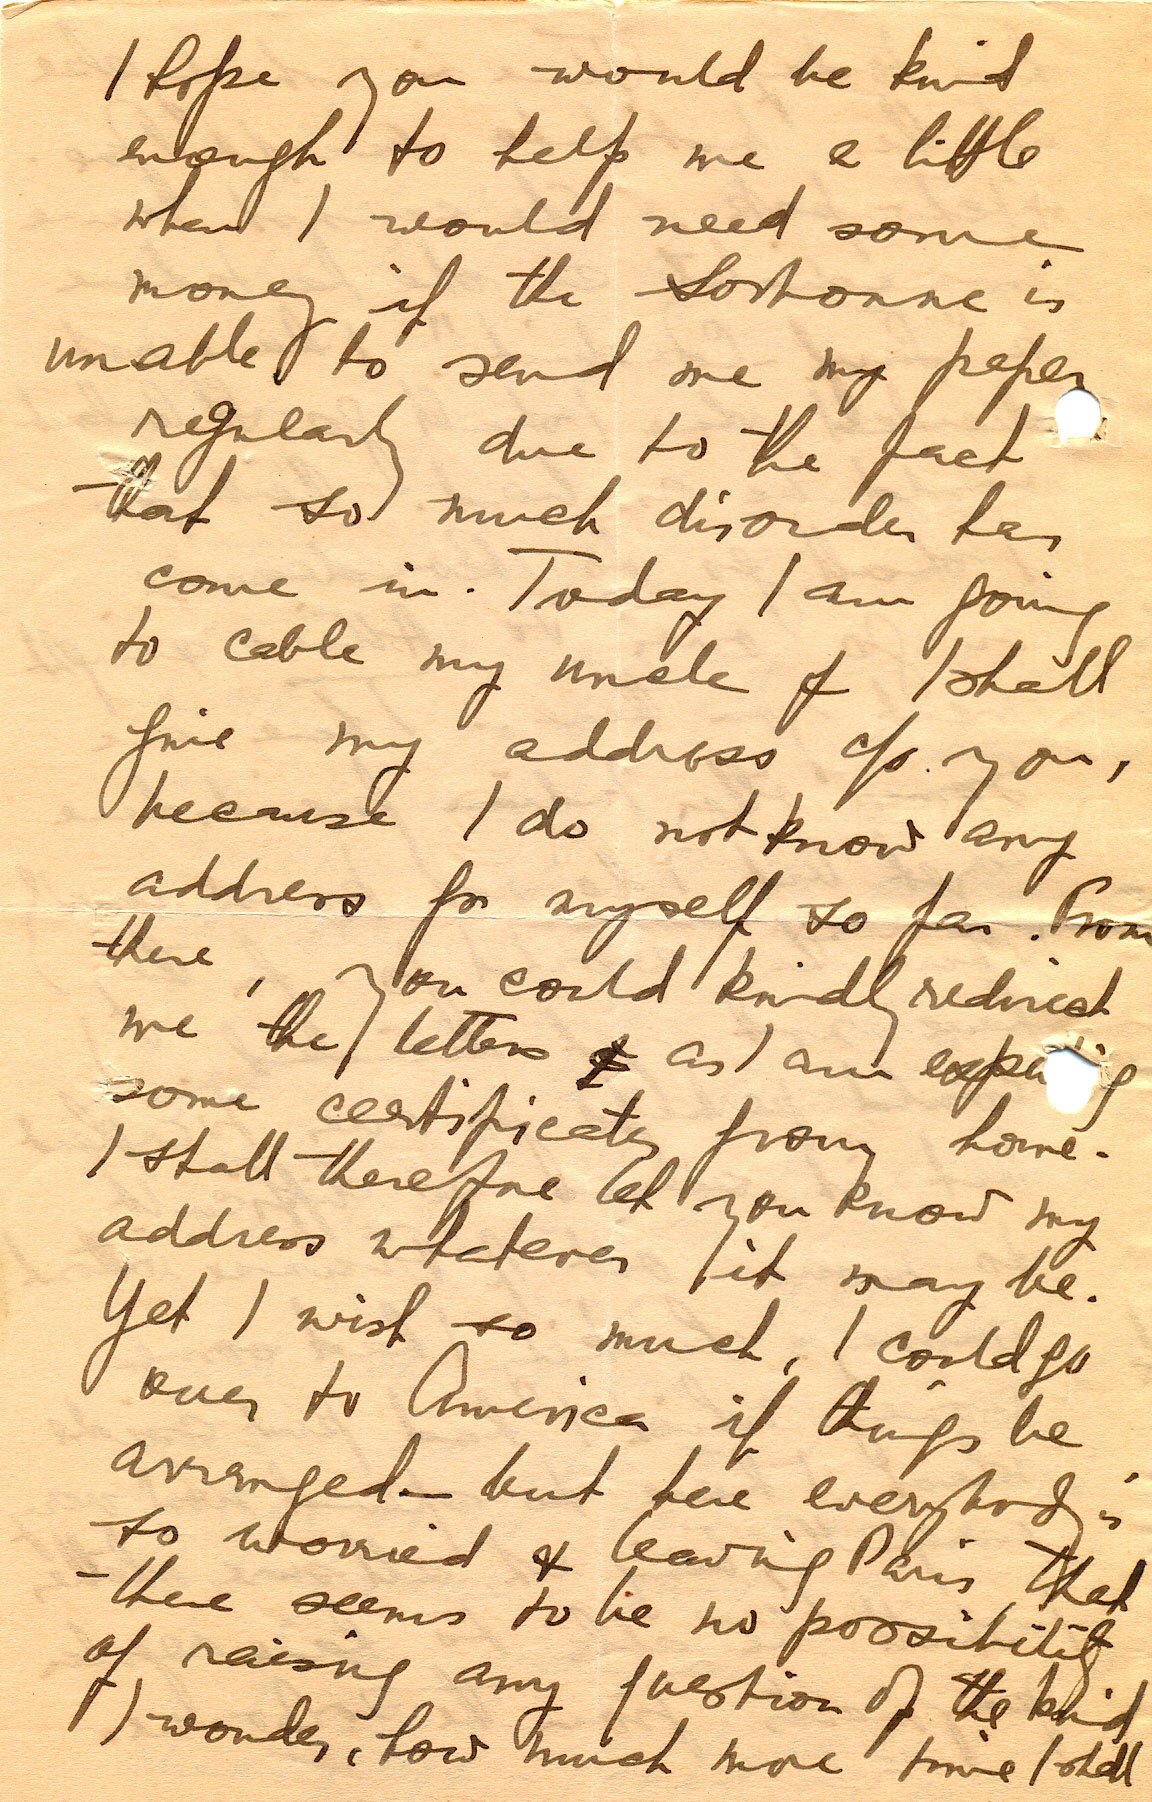 I hope you would be kind
enough to help me a little
when I would need some
money if the Sorbonne is
unable to send me my paper
regularly due to the fact
that so much disorder has
come in. Today I am going
to cable my uncle & I shall
give my address c/o. you,
because I do not know any
address for myself so far. From
there, you could kindly redirect
me the letters & as I am expecting
some certificates from home.
I shall therefore let you know my
address whatever it may be.
Yet I wish so much, I could go
over to America if things be
arranged – but here everybody is
so worried & leaving Paris that
there seems to be no possibility
of raising any question of the kind
I wonder, how much more time I shall